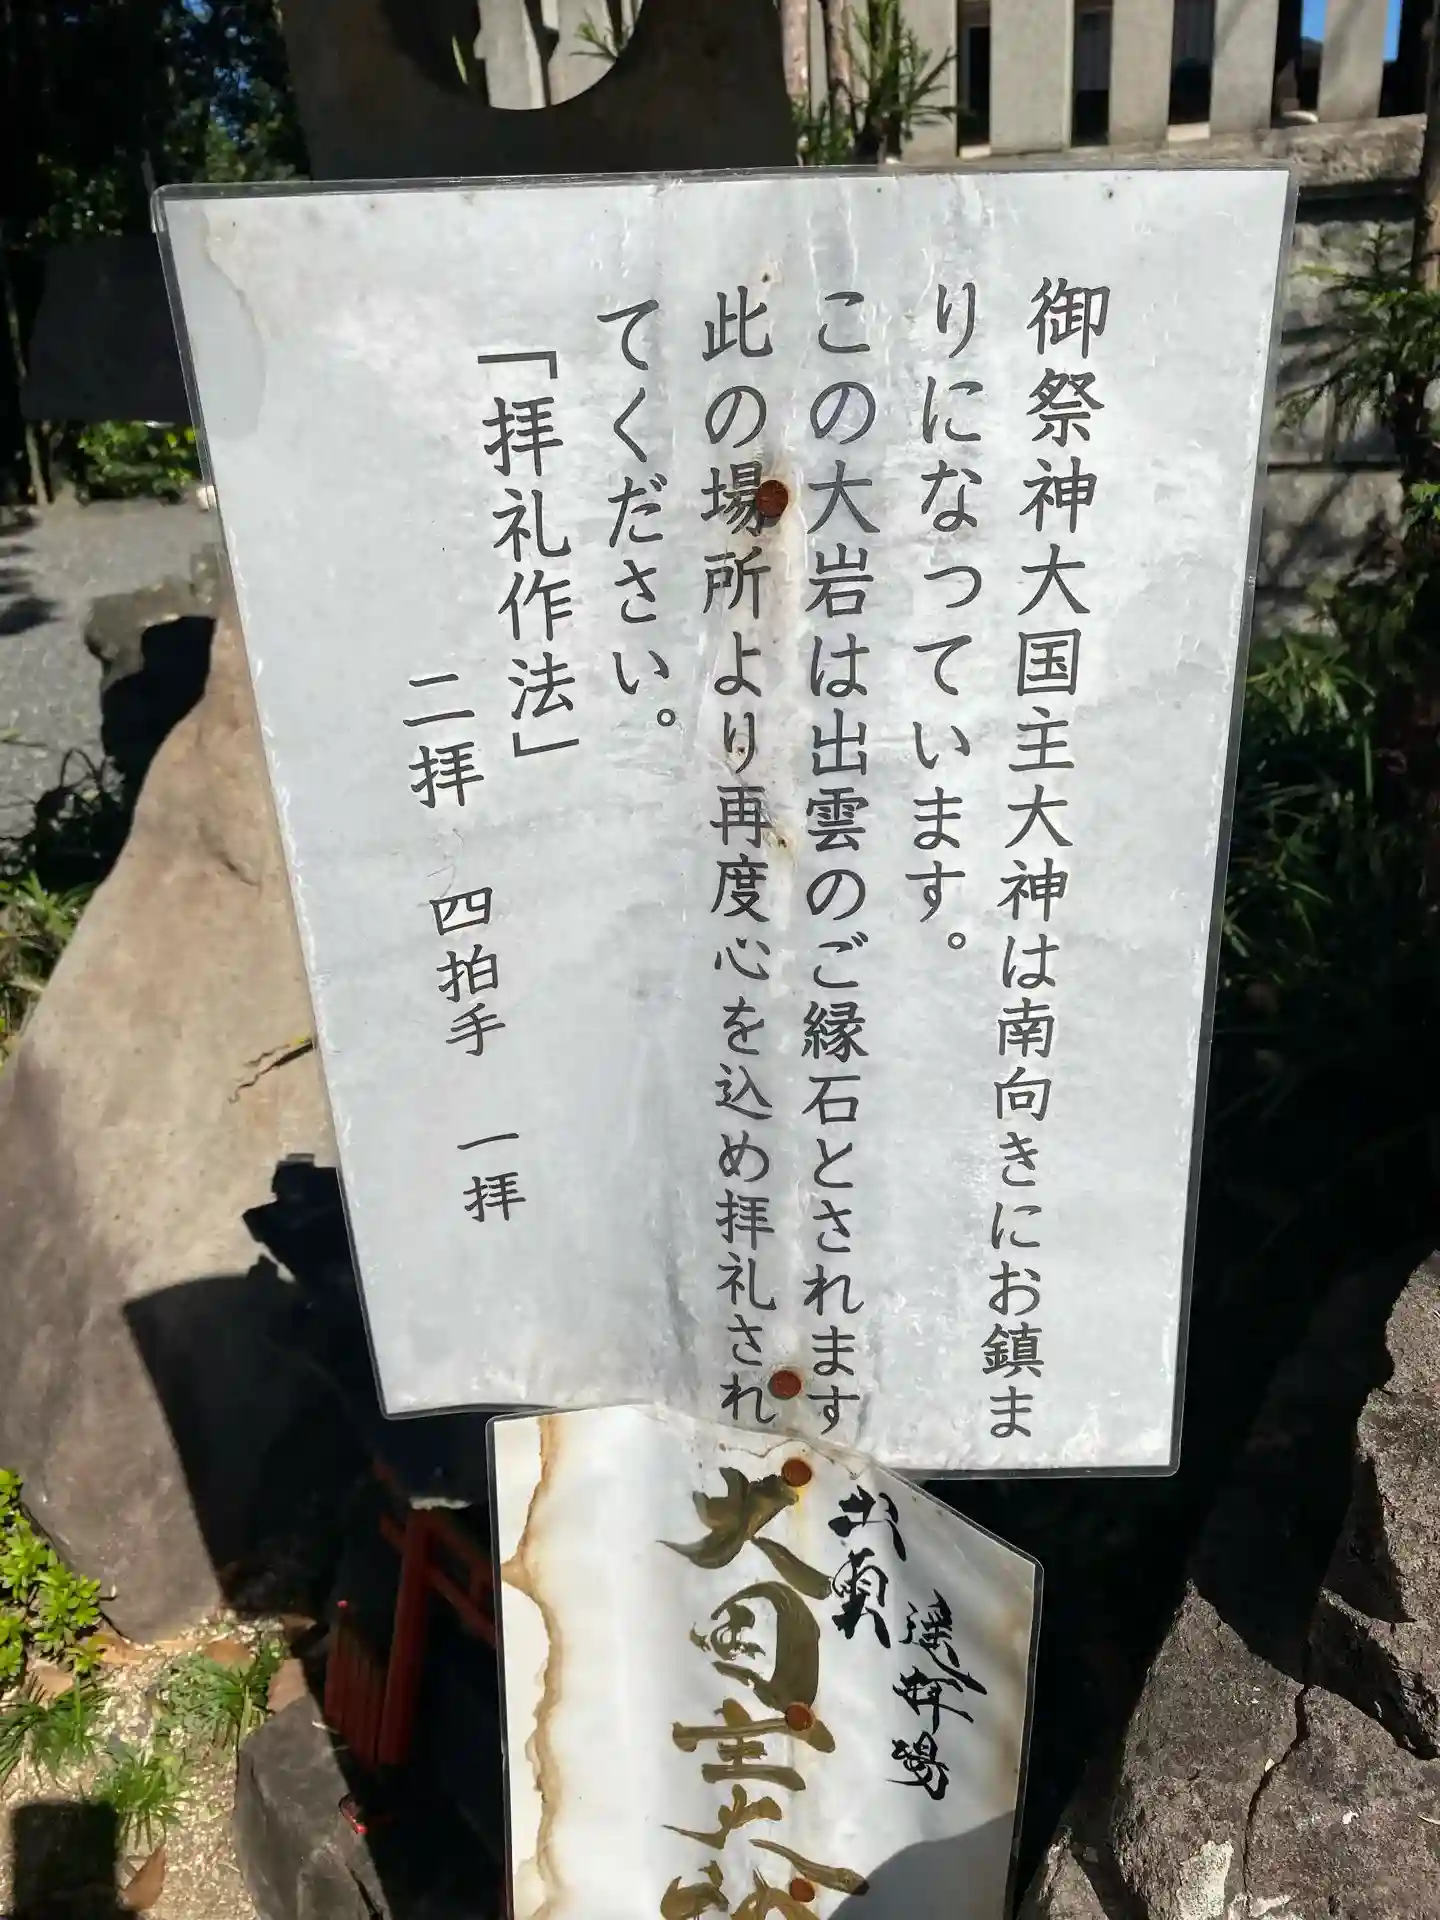 御祭神大国主大神は南向きにお鎮ま
りになっています。
この大岩は出雲のご縁石とされます
此の場所より再度心を込め拝礼され
てください。
「拝礼作法」
二拝 四拍手 一拝
出雲
遥拝場
大国主大神